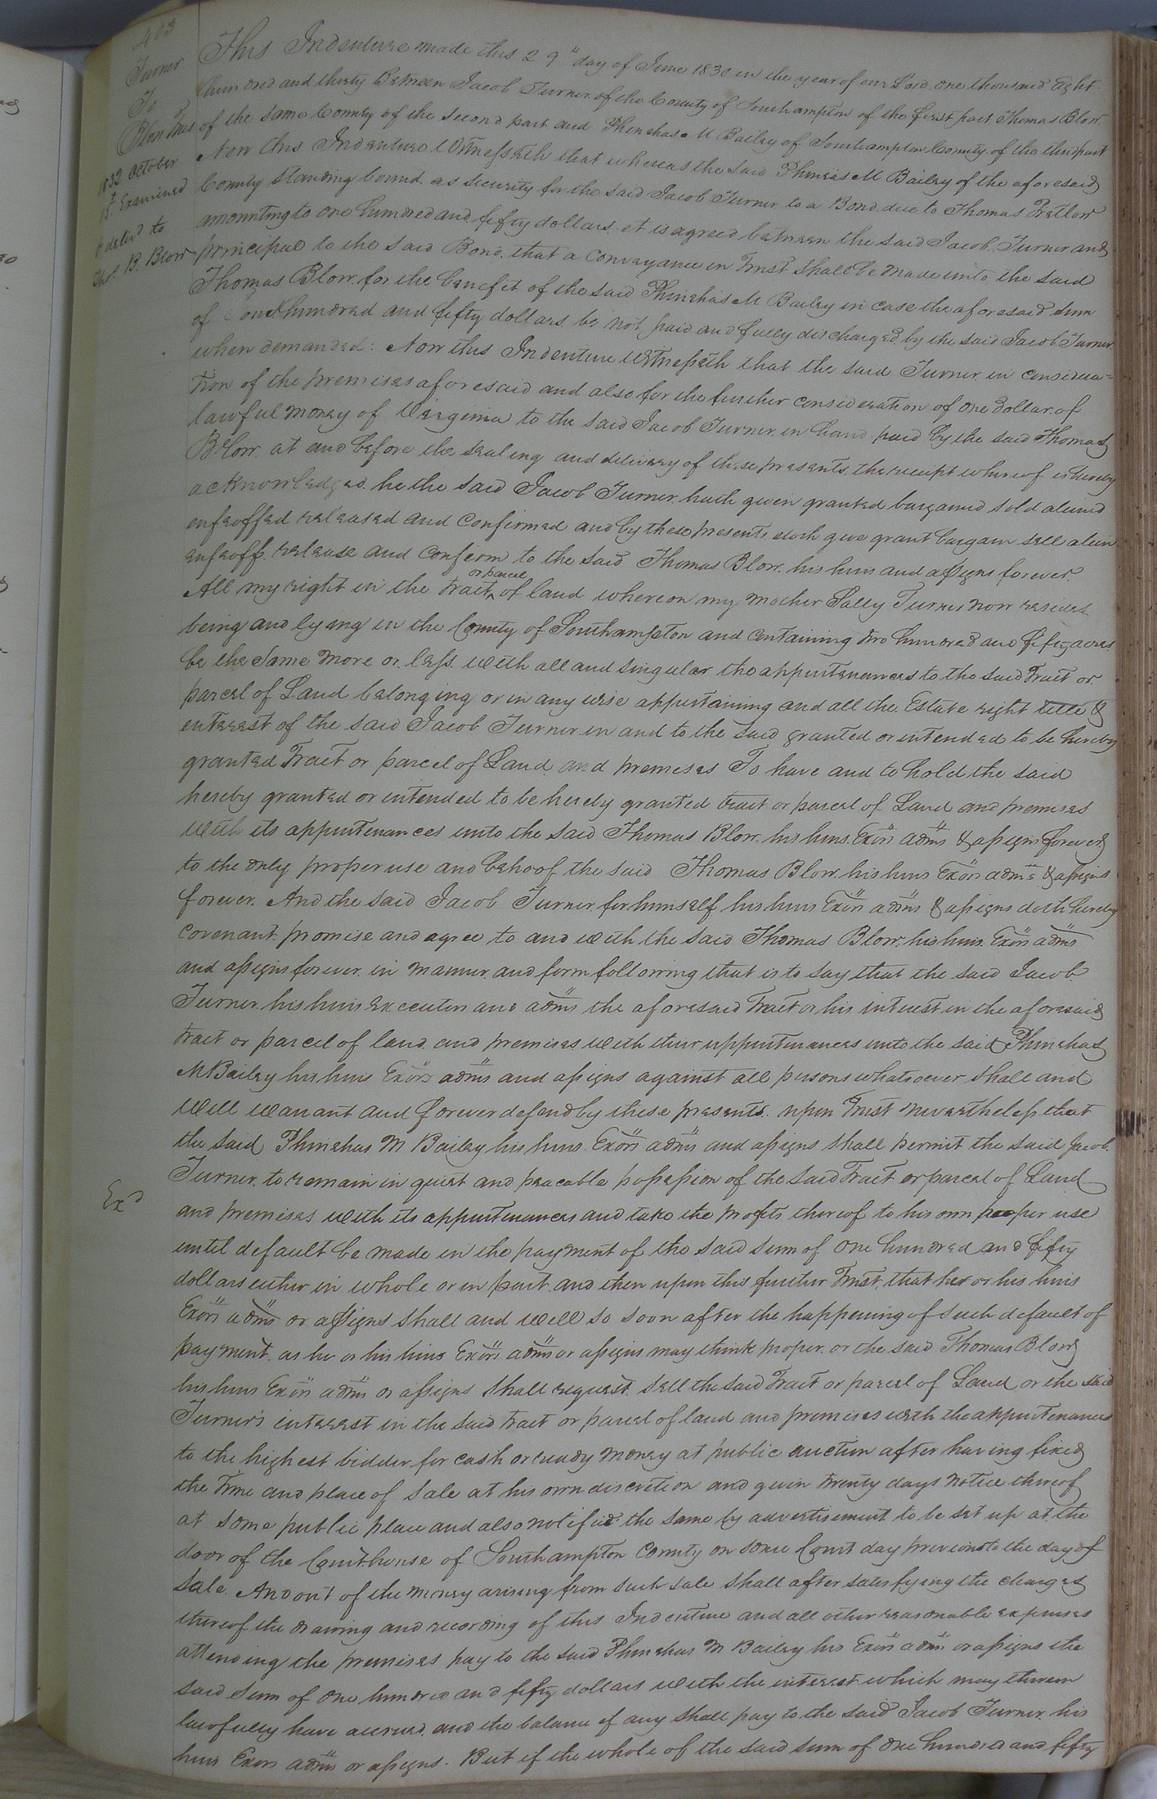 463
Turner
To
Blow Trus
1832 October
15th Examined
& deliv'd to
Thos. B. Blow
This Indenture made this 29" day of June 1830 in the year of our Lord one thousand Eight
hundred and thirty Between Jacob Turner of the County of Southampton of the first part Thomas Blow
of the same County of the second part and Phinehas M Bailey of Southampton County of the third part
Now this Indenture Witnesseth that whereas the said Phinehas M Bailey of the aforesaid
County standing bound as security for the said Jacob Turner to a Bond due to Thomas Pretlow
amounting to one hundred and fifty dollars, it is agreed between the said Jacob Turner and
principal to the said Bond, that a conveyance in Trust shall be made unto the said
Thomas Blow for the benefit of the said Phinehas M Bailey in case the aforesaid sum
of One hundred and fifty dollars be not paid and fully discharged by the said Jacob Turner
when demanded: Now this Indenture Witnesseth that the said Turner in considera=
tion of the premises aforesaid and also for the further consideration of one dollar of
lawful money of Virginia to the said Jacob Turner in hand paid by the said Thomas
Blow at and before the sealing and delivery of these presents the receipt whereof is hereby
acknowledged he the said Jacob Turner hath given granted bargained sold aliend
enfeoffed released and confirmed and by these presents doth give grant bargain sell alien
enfeoff release and confirm to the said Thomas Blow his heirs and assigns forever
All my right in the tract or parcel of land whereon my mother Sally Turner now resides
being and lying in the County of Southampton and containing two hundred and fifty acres
be the same more or less with all and singular the appurtenances to the said Tract or
parcel of Land belonging or in any wise appertaining and all the Estate right title &
interest of the said Jacob Turner in and to the said granted or intended to be hereby
granted Tract or parcel of Land and premises To have and to hold the said
hereby granted or intended to be hereby granted tract or parcel of Land and premises
with its appurtenances unto the said Thomas Blow his heirs Exors adms & assigns forever
to the only proper use and behoof the said Thomas Blow his heirs Exors adms & assigns
forever. And the said Jacob Turner for himself his heirs Exors adms & assigns doth hereby
covenant promise and agree to and with the said Thomas Blow his heirs Exors adms
and assigns forever in manner and form following that is to say that the said Jacob
Turner his heirs Executors and adms the aforesaid Tract or his interest in the aforesaid
tract or parcel of land and premises with their appurtenances unto the said Phinehas
M Bailey his heirs Exors adms and assigns against all persons whatsoever shall and
will warrant and forever defend by these presents upon Trust nevertheless that
the said Phinehas M Bailey his heirs Exors adms and assigns shall permit the said Jacob
Turner to remain in quiet and peacable possession of the said Tract or parcel of Land
Ex'd
and premises with its appurtenances and take the profits thereof to his own proper use
until default be made in the payment of the said sum of One hundred and fifty
dollars either in whole or in part and then upon this further Trust, that he or his heirs
Exors adms or assigns shall and will so soon after the happening of such default of
payment as he or his heirs Exors adms or assigns may think proper or the said Thomas Blow
his heirs Exors adms or assigns shall request sell the said Tract or parcel of Land or the said
Turner's interest in the said tract or parcel of land and premises with the appurtenances
to the highest bidder for cash or ready money at public auction after having fixed
the Time and place of Sale at his own discretion and given twenty days notice thereof
at some public place and also notified the same by advertisement to be set up at the
door of the Courthouse of Southampton County on some Court day previous to the day of
Sale. And out of the money arising from such sale shall after satisfying the charges
thereof the drawing and recording of this Indenture and all other reasonable expenses
attending the premises pay to the said Phinehas M Bailey his Exors adms or assigns the
said sum of One hundred and fifty dollars with the interest which may thereon
lawfully have accrued, and the balance if any shall pay to the said Jacob Turner his
heirs Exors adms or assigns. But if the whole of the said sum of One hundred and fifty